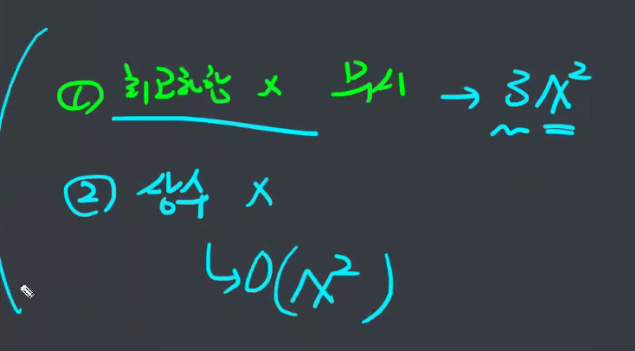 ① 최고차항 x 무시 → 3N²
② 상수 x
↳ O(N²)